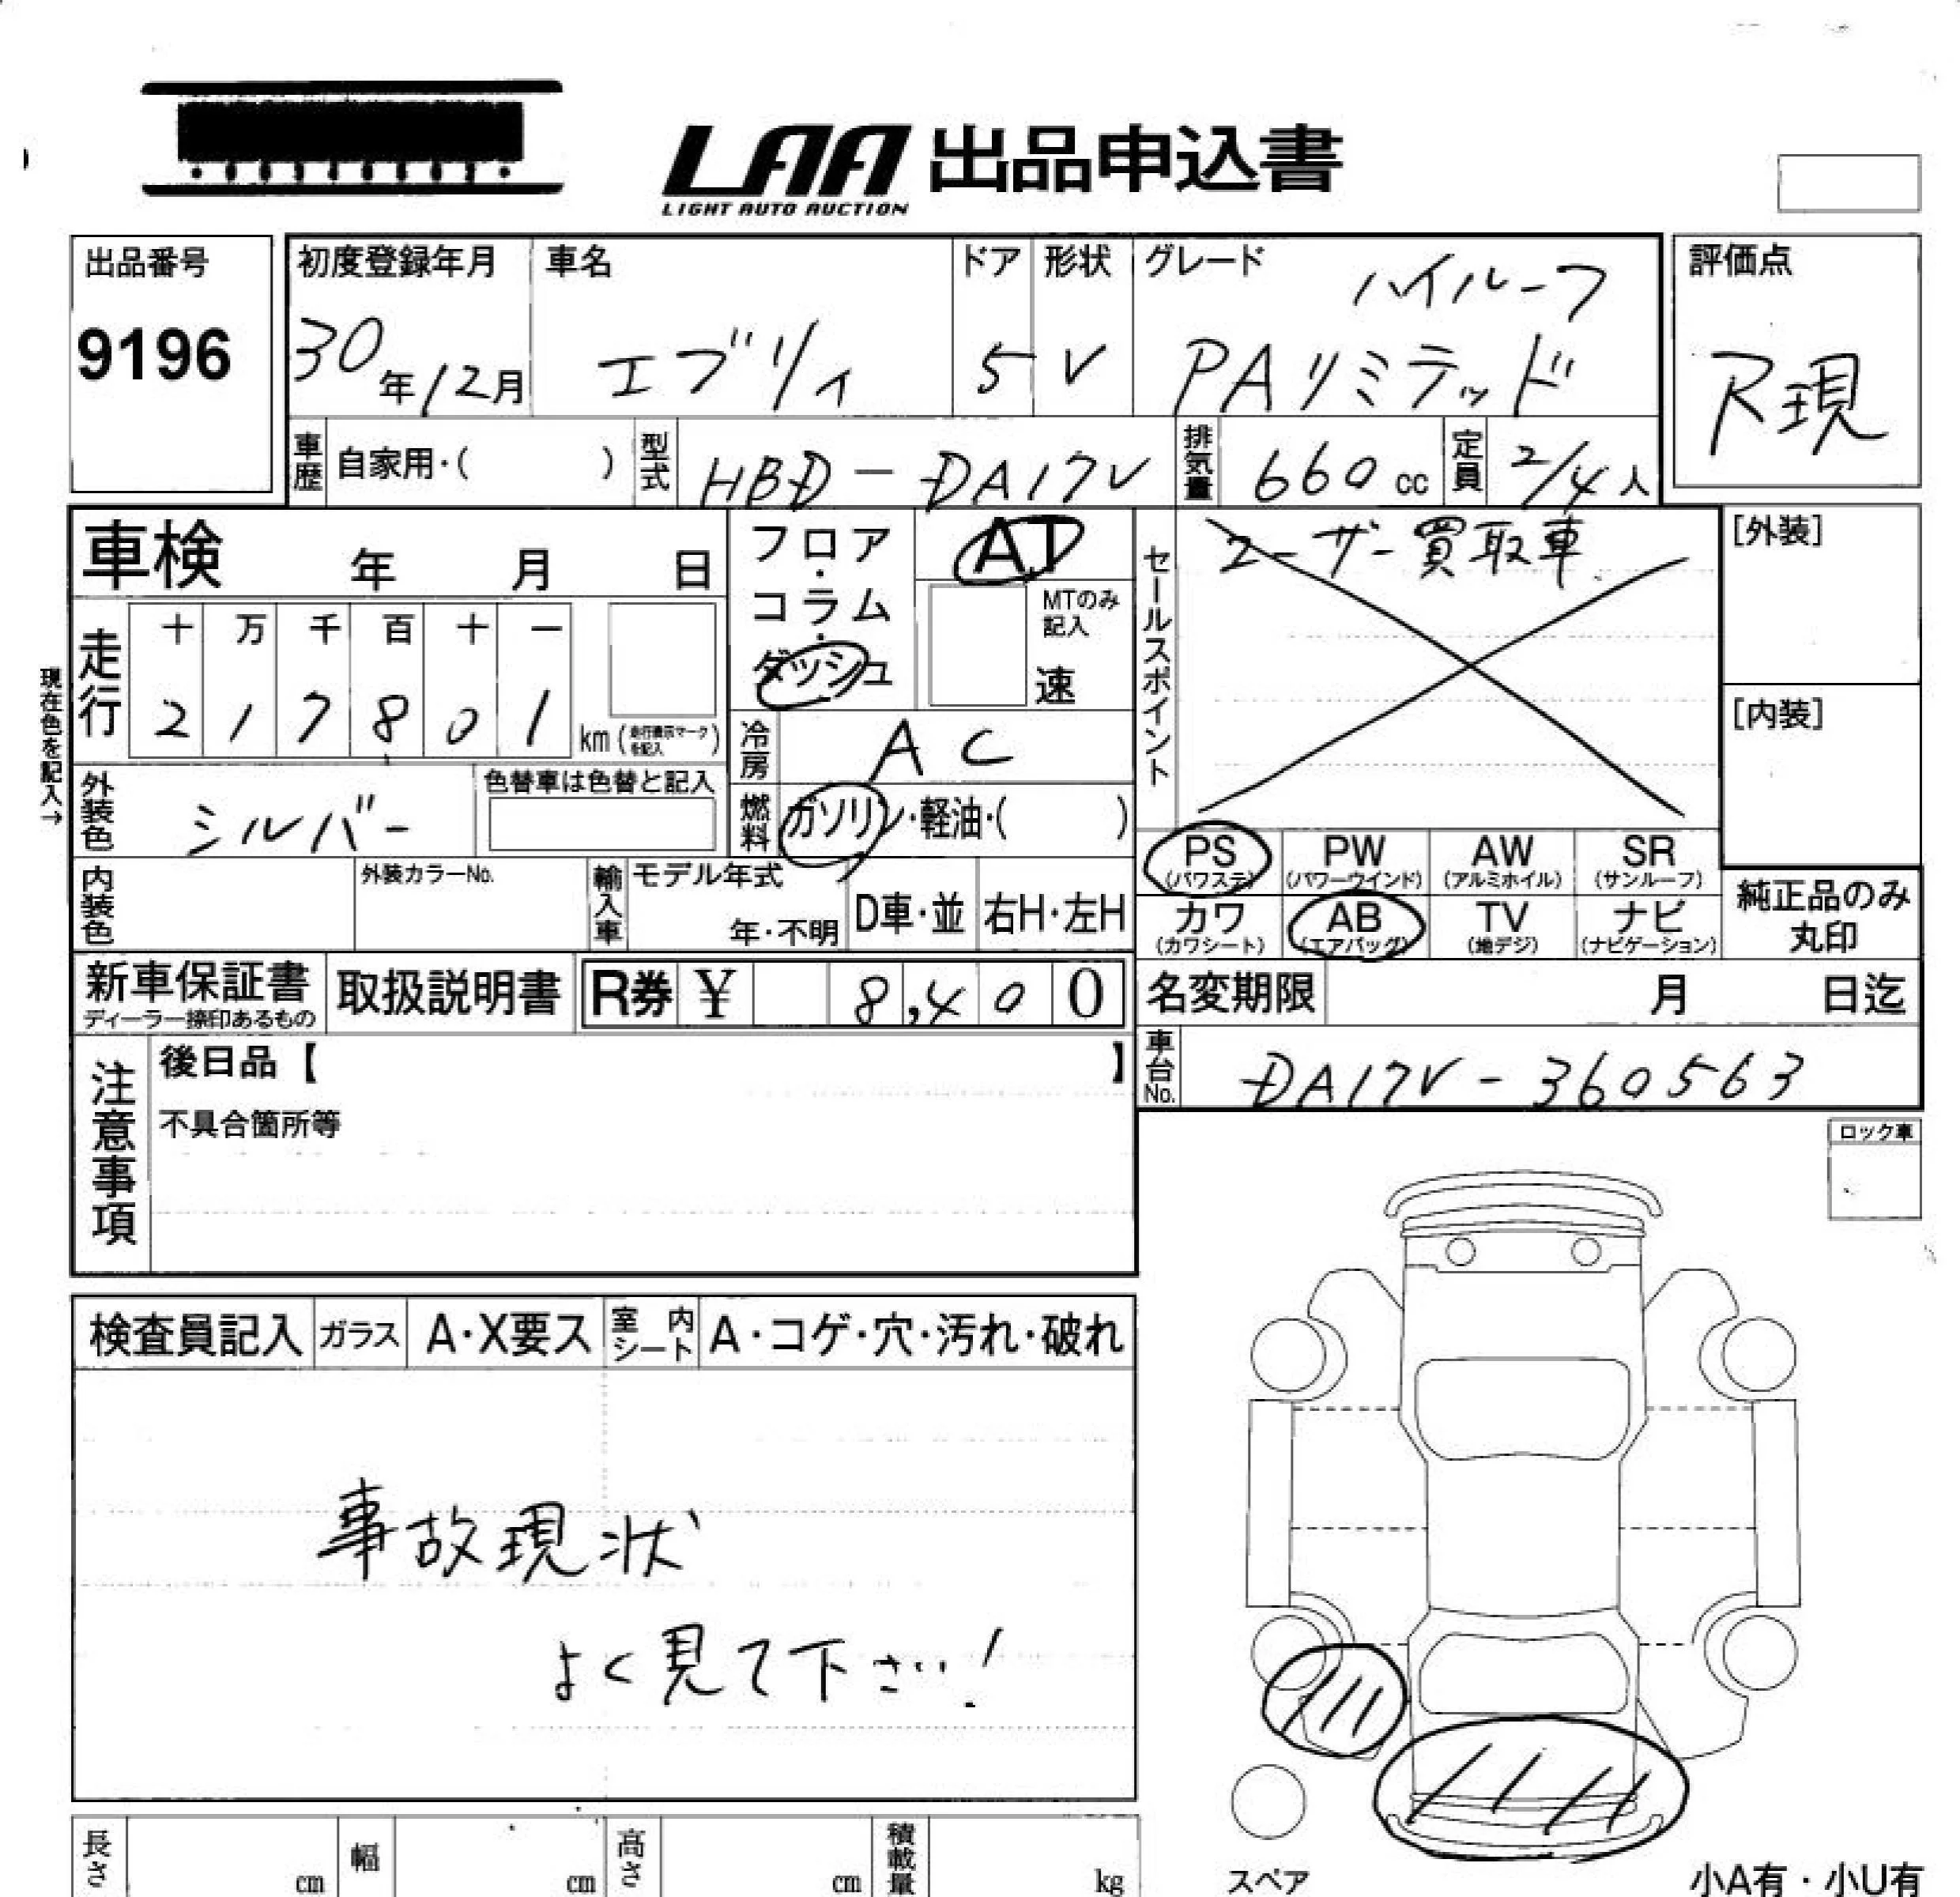 LAA 出品申込書
LIGHT AUTO AUCTION
出品番号
9196
初度登録年月
30年12月
車名
エブリイ
ドア
5
形状
V
グレード
ハイルーフ
PAリミテッド
評価点
R現
車歴 自家用・( )
型式 HBD-DA17V
排気量 660cc
定員 2/4人
車検 年 月 日
フロア・コラム・ダッシュ
AT
MTのみ記入
速
セールスポイント
ユーザー買取車
[外装]
[内装]
現在色を記入→
走行
十 万 千 百 十 一
2 1 7 8 0 1 km(走行表示マークを記入)
冷房 AC
外装色 シルバー
色替車は色替と記入
燃料 ガソリン・軽油・( )
PS (パワステ)
PW (パワーウインド)
AW (アルミホイル)
SR (サンルーフ)
カワ (カワシート)
AB (エアバッグ)
TV (地デジ)
ナビ (ナビゲーション)
純正品のみ丸印
内装色
外装カラーNo.
輸入車
モデル年式
年・不明
D車・並
右H・左H
新車保証書
ディーラー捺印あるもの
取扱説明書
R券 ¥ 8,400
名変期限 月 日迄
車台No. DA17V-360563
注意事項
後日品【 】
不具合箇所等
ロック車
検査員記入
ガラス A・X要ス
室内シート A・コゲ・穴・汚れ・破れ
事故現状
よく見て下さい!
長さ cm
幅 cm
高さ cm
積載量 kg
スペア
小A有・小U有